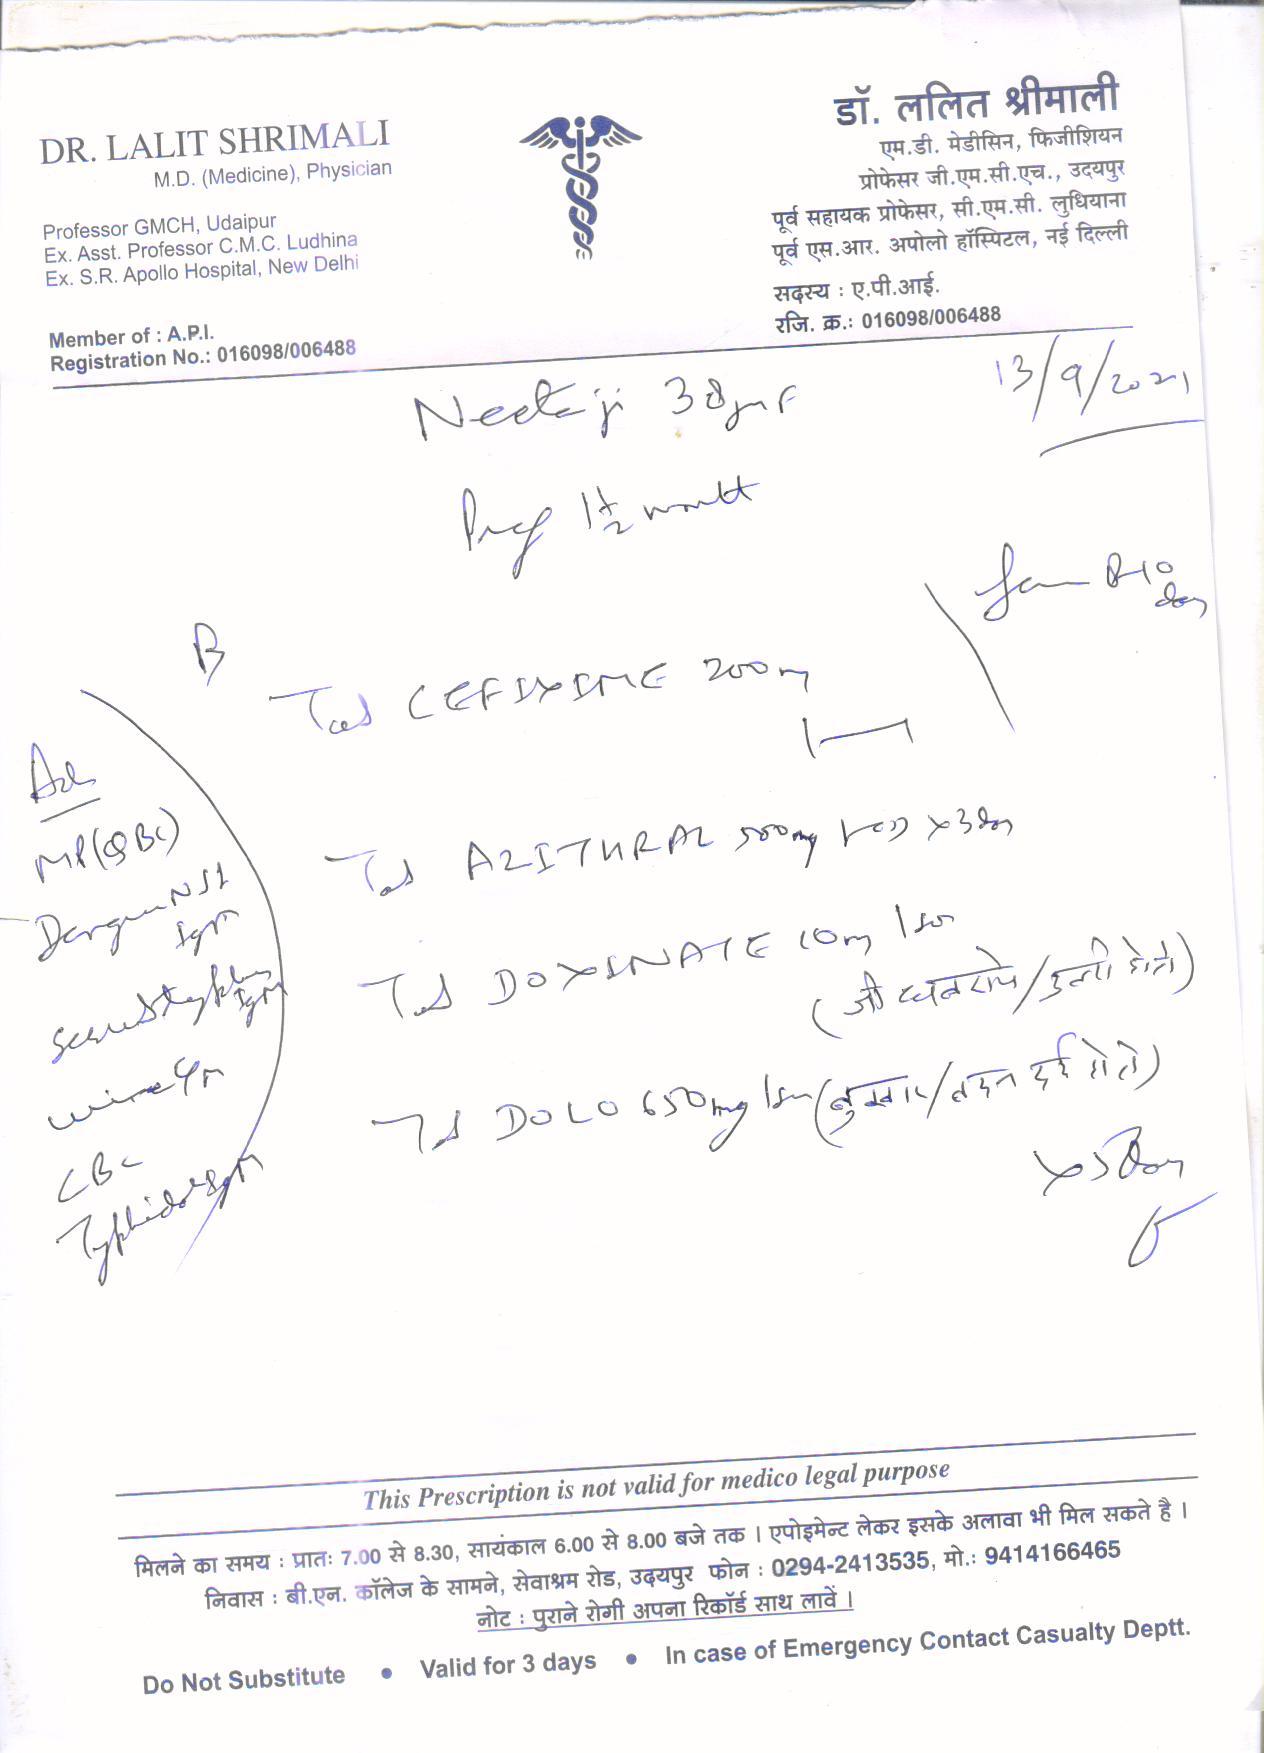 DR. LALIT SHRIMALI
M.D. (Medicine), Physician
Professor GMCH, Udaipur
Ex. Asst. Professor C.M.C. Ludhina
Ex. S.R. Apollo Hospital, New Delhi
Member of : A.P.I.
Registration No.: 016098/006488
डॉ. ललित श्रीमाली
एम.डी. मेडीसिन, फिजीशियन
प्रोफेसर जी.एम.सी.एच., उदयपुर
पूर्व सहायक प्रोफेसर, सी.एम.सी. लुधियाना
पूर्व एस.आर. अपोलो हॉस्पिटल, नई दिल्ली
सदस्य : ए.पी.आई.
रजि. क्र.: 016098/006488
13/9/2021
Neeta ji 38yr F
Preg 1 1/2 month
day
Tab CEFIXIME 200mg
1—1
Tab AZITHRAL 500mg x 3day
Tab DOXINATE 10mg 1 sos
(जी घबराये/उल्टी हो तो)
Tab DOLO 650mg 1 sos (बुखार/बदन दर्द हो तो)
x 5 Day
Adv
MP(QBC)
Dengue NS1
IgM
IgM
Urine
CBC
Typhidot IgM
This Prescription is not valid for medico legal purpose
मिलने का समय : प्रातः 7.00 से 8.30, सायंकाल 6.00 से 8.00 बजे तक । एपोइमेन्ट लेकर इसके अलावा भी मिल सकते है ।
निवास : बी.एन. कॉलेज के सामने, सेवाश्रम रोड, उदयपुर फोन : 0294-2413535, मो.: 9414166465
नोट : पुराने रोगी अपना रिकॉर्ड साथ लावें ।
Do Not Substitute • Valid for 3 days • In case of Emergency Contact Casualty Deptt.